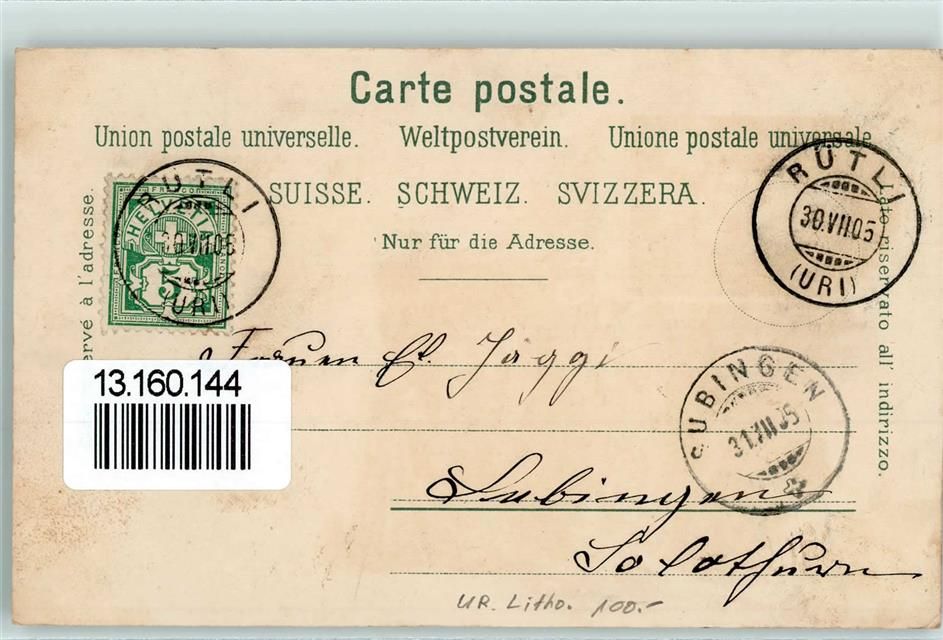 Carte postale.
Union postale universelle. Weltpostverein. Unione postale universale
SUISSE. SCHWEIZ. SVIZZERA.
Nur für die Adresse.
RÜTLI
30.VII.05
(URI)
FRANCO
HELVETIA
5
RÜTLI
30.VII.05
(URI)
ervé à l'adresse.
Lato riservato all' indirizzo.
13.160.144
Jäggi
SUBINGEN
31.VII.05
Subingen
Solothurn
UR. Litho. 100.-